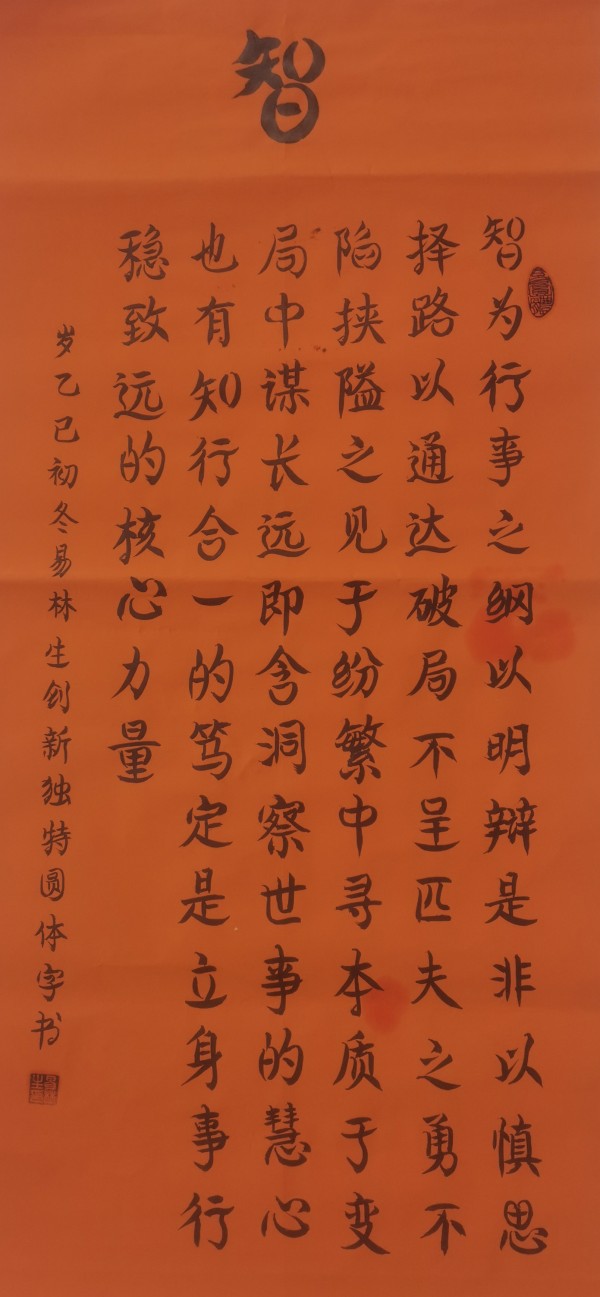 智
智为行事之纲以明辩是非以慎思
择路以通达破局不呈匹夫之勇不
陷挟隘之见于纷繁中寻本质于变
局中谋长远即含洞察世事的慧心
也有知行合一的笃定是立身事行
稳致远的核心力量
岁乙巳初冬易林生创新独特圆体字书